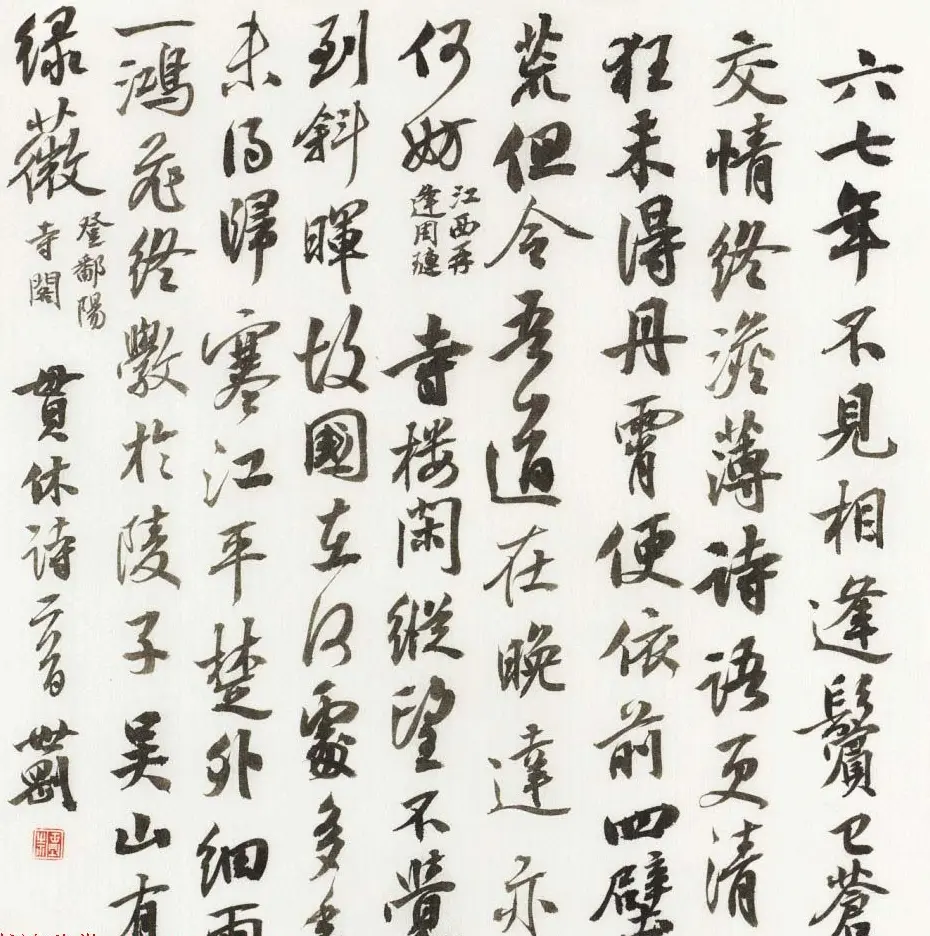 六七年不見相逢鬢已蒼
交情終澹薄詩語更清
狂未得丹霄便依前四壁
荒但令吾道在晚達亦
何妨
江西再
逢周璉
寺樓閑縱望不覺
到斜暉故國在何處多
未得歸寒江平楚外細雨
一鴻飛終斆於陵子吴山有
緑薇
登鄱陽
寺閣
貫休詩二首 世剛